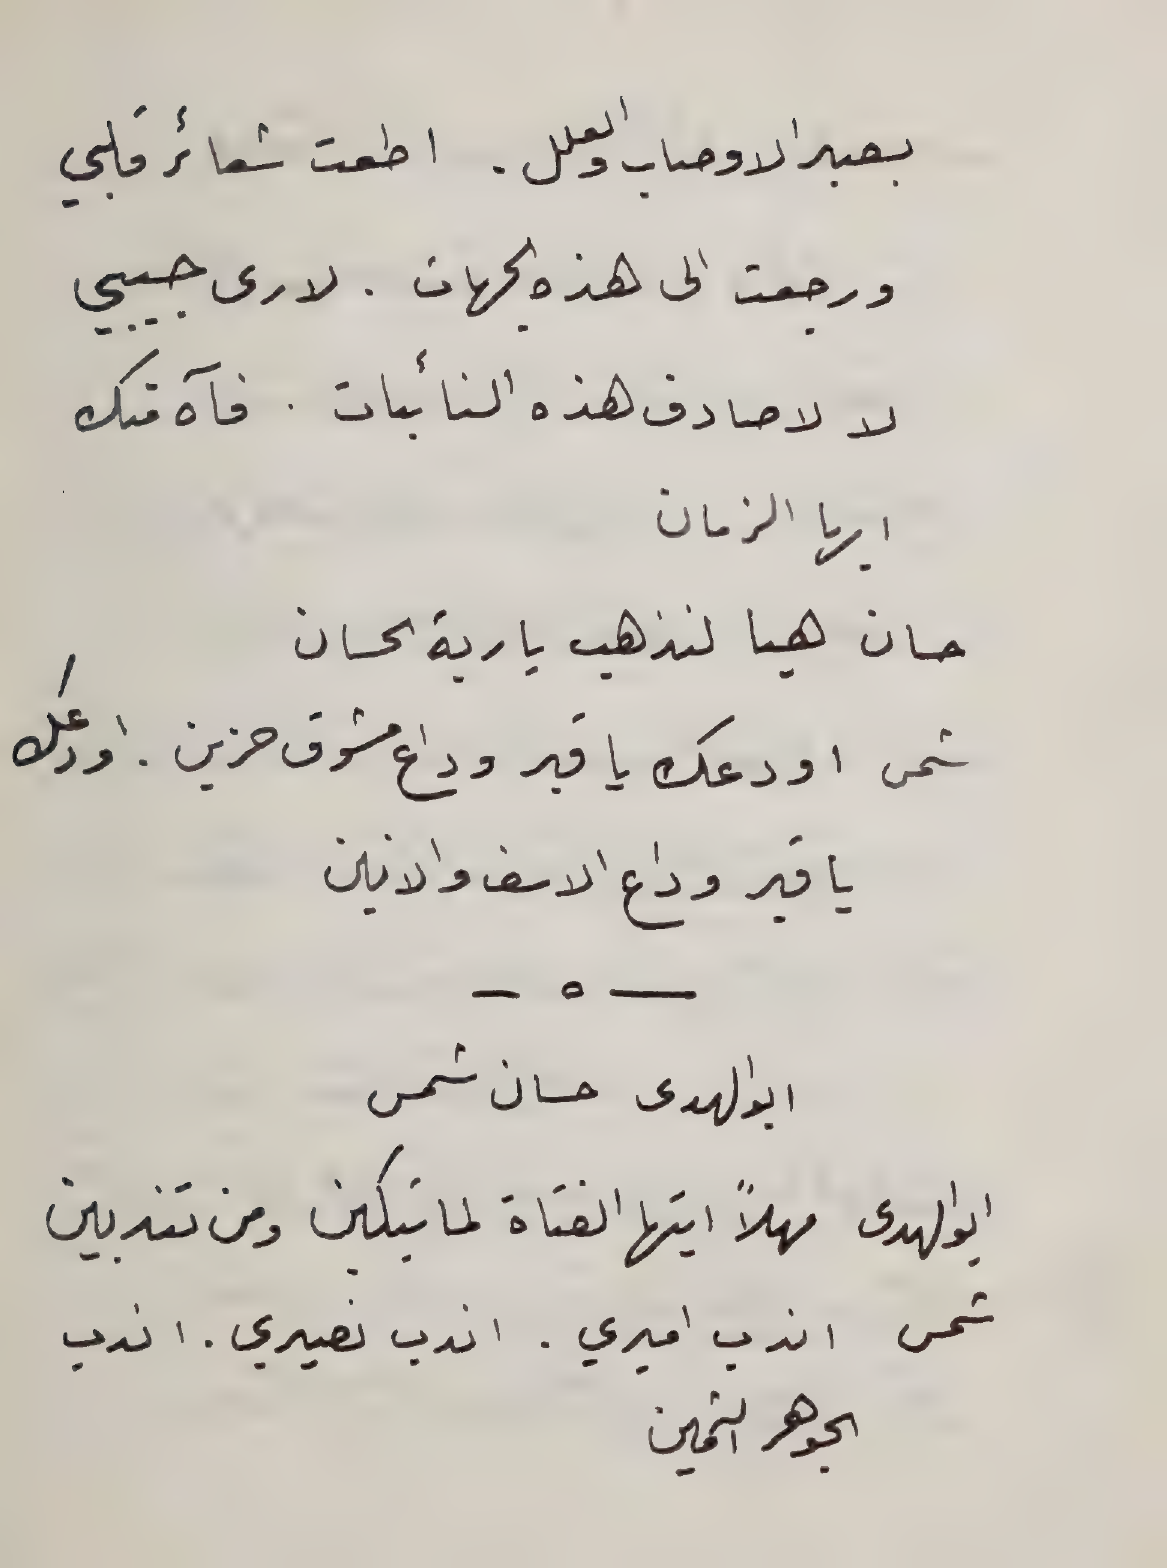 بصبر الاوصاب والعلل . اطعت شعائر قلبي
ورجعت الى هذه الجهات . لارى حبيبي
لا لاصادف هذه النائبات . فآه منك
ايها الزمان
حسان هيا لنذهب يا ربة الحسان
شمس اودعك يا قبر وداع مشوق حزين . اودعك
يا قبر وداع الاسف والانين
— ٥ —
ابو الهدى حسان شمس
ابو الهدى مهلاً ايتها الفتاة لما تبكين ومن تندبين
شمس اندب اميري . اندب نصيري . اندب
الجوهر الثمين